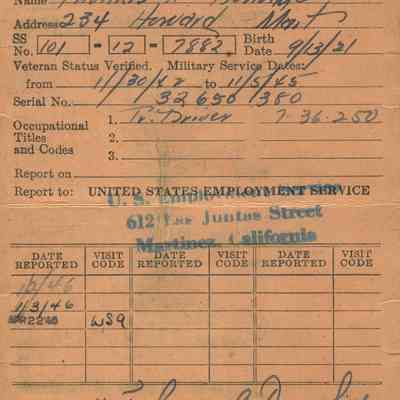 Name Thomas
Address 234 Howard Mart
SS No. 101 - 12 - 7882 Birth Date 9/13/21
Veteran Status Verified. Military Service Dates:
from 11/30/42 to 11/5/45
Serial No. 32650380
Occupational Titles and Codes
1. Tr. Driver 7-36.250
2.
3.
Report on
Report to: UNITED STATES EMPLOYMENT SERVICE
U. S. Employment Service
612 Las Juntas Street
Martinez, California
DATE REPORTED VISIT CODE DATE REPORTED VISIT CODE DATE REPORTED VISIT CODE
1/3/46